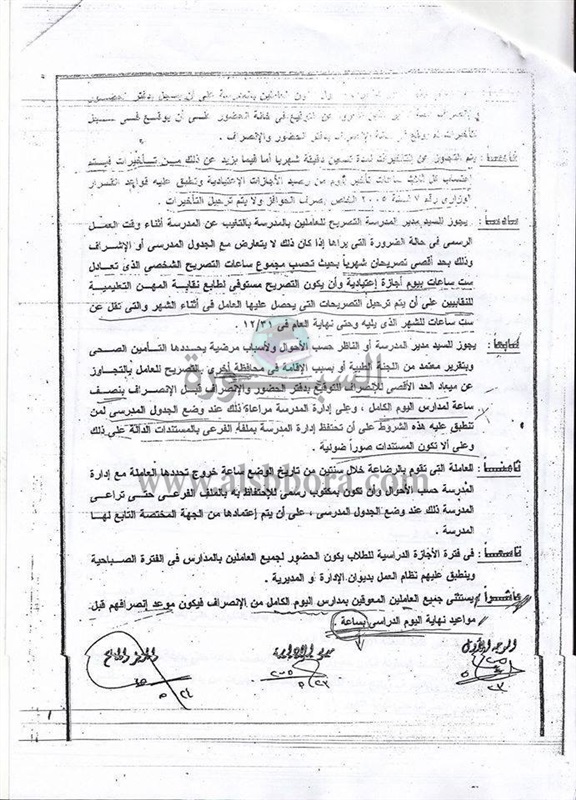 العاملين بالمدرسة على أن يسجل بدفتر الحضور
عن التوقيع في خانة الحضور على أن يوقع في سجل
التأخيرات ثم يوقع في خانة الإنصراف بدفتر الحضور والإنصراف .
خامسا : يتم التجاوز عن التأخيرات لمدة تسعين دقيقة شهريا أما فيما يزيد عن ذلك من تأخيرات فيتم
إحتساب كل ثلاث ساعات تأخير بيوم من رصيد الأجازات الإعتيادية وتطبق عليه قواعد القرار
الوزارى رقم ٧ لسنة ٢٠٠٥ الخاص بصرف الحوافز ولا يتم ترحيل التأخيرات .
سادسا : يجوز للسيد مدير المدرسة التصريح للعاملين بالمدرسة بالتغيب عن المدرسة أثناء وقت العمل
الرسمى فى حالة الضرورة التى يراها إذا كان ذلك لا يتعارض مع الجدول المدرسى أو الإشراف
وذلك بحد أقصى تصريحان شهريا بحيث تحسب مجموع ساعات التصريح الشخصى الذى تعادل
ست ساعات بيوم أجازة إعتيادية وأن يكون التصريح مستوفى لطابع نقابة المهن التعليمية
للنقابيين على أن يتم ترحيل التصريحات التى يحصل عليها العامل فى أثناء الشهر والتى تقل عن
ست ساعات للشهر الذى يليه وحتى نهاية العام فى ١٢/٣١ .
سابعا : يجوز للسيد مدير المدرسة أو الناظر حسب الأحوال ولأسباب مرضية يحددها التأمين الصحى
وبتقرير معتمد من اللجنة الطبية أو بسبب الإقامة فى محافظة أخرى التصريح للعامل بالتجاوز
عن ميعاد الحد الأقصى للإنصراف للتوقيع بدفتر الحضور والإنصراف قبل الإنصراف بنصف
ساعة لمدارس اليوم الكامل ، وعلى إدارة المدرسة مراعاة ذلك عند وضع الجدول المدرسى لمن
تنطبق عليه هذه الشروط على أن تحتفظ إدارة المدرسة بملفه الفرعى بالمستندات الدالة على ذلك
وعلى ألا تكون المستندات صوراً ضوئية .
ثامنا : العاملة التى تقوم بالرضاعة خلال سنتين من تاريخ الوضع ساعة خروج تحددها العاملة مع إدارة
المدرسة حسب الأحوال وأن تكون بمكتوب رسمى للإحتفاظ به بالملف الفرعى حتى تراعى
المدرسة ذلك عند وضع الجدول المدرسى ، على أن يتم إعتمادها من الجهة المختصة التابع لها
المدرسة .
تاسعا : فى فترة الأجازة الدراسية للطلاب يكون الحضور لجميع العاملين بالمدارس فى الفترة الصباحية
وينطبق عليهم نظام العمل بديوان الإدارة أو المديرية .
عاشرا : يستثنى جميع العاملين المعوقين بمدارس اليوم الكامل من الإنصراف فيكون موعد إنصرافهم قبل
مواعيد نهاية اليوم الدراسى بساعة .
السبورة
www.alsbbora.com